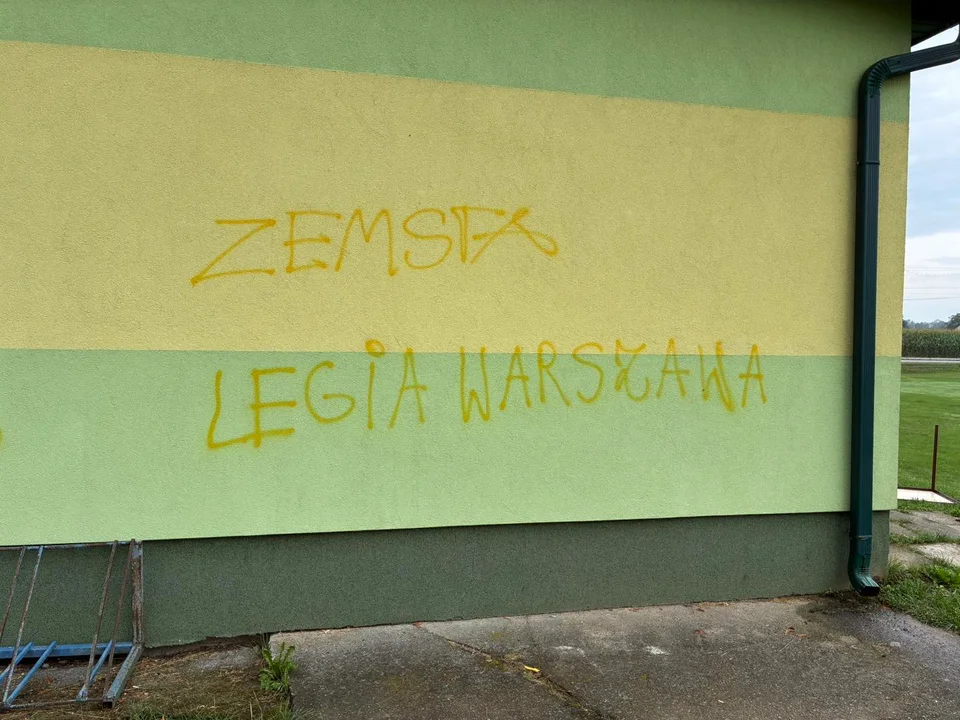 ZEMSTA
LEGiA WARSZAWA